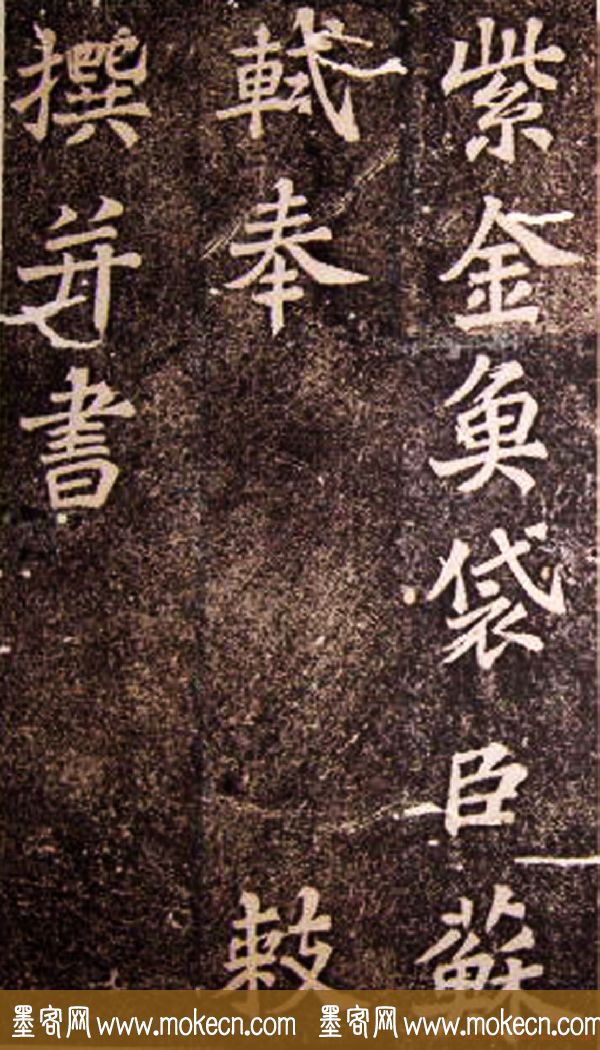 紫金魚袋臣蘇
軾奉敕
撰并書
墨客网 www.mokecn.com 墨客网 www.mokecn.com